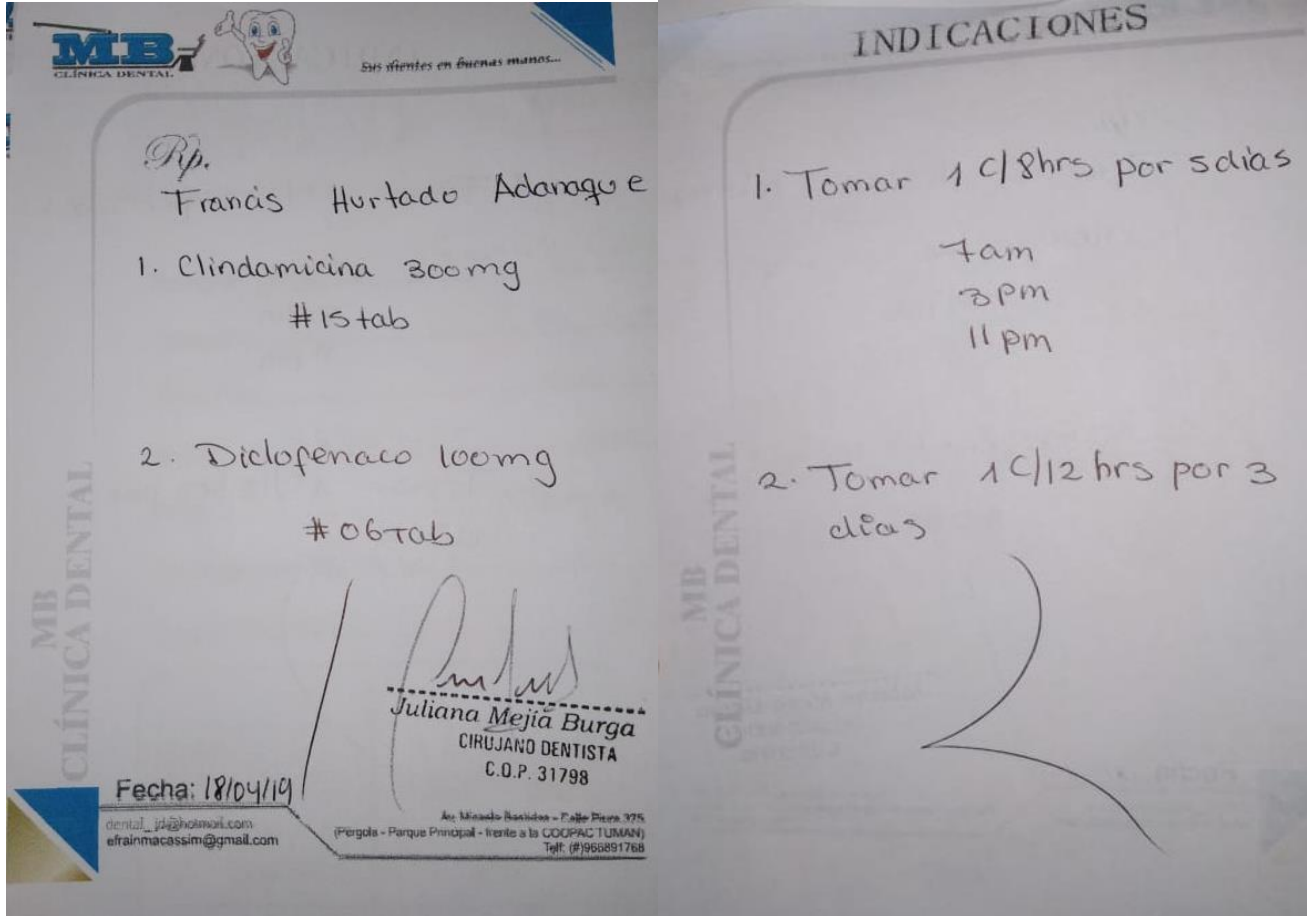 MB
CLÍNICA DENTAL
Sus dientes en buenas manos...
Rp.
Francis Hurtado Adanaque
1. Clindamicina 300mg
#15tab
2. Diclofenaco 100mg
#06Tab
MB
CLÍNICA DENTAL
Juliana Mejía Burga
CIRUJANO DENTISTA
C.O.P. 31798
Fecha: 18/04/19
dental_jd@hotmail.com
efrainmacassim@gmail.com
(Pérgola - Parque Principal - frente a la COOPAC TUMAN)
Telf: (#)966891768
INDICACIONES
1. Tomar 1 c/8hrs por 5dias
7am
3pm
11pm
2. Tomar 1 C/12 hrs por 3
dias
MB
CLÍNICA DENTAL